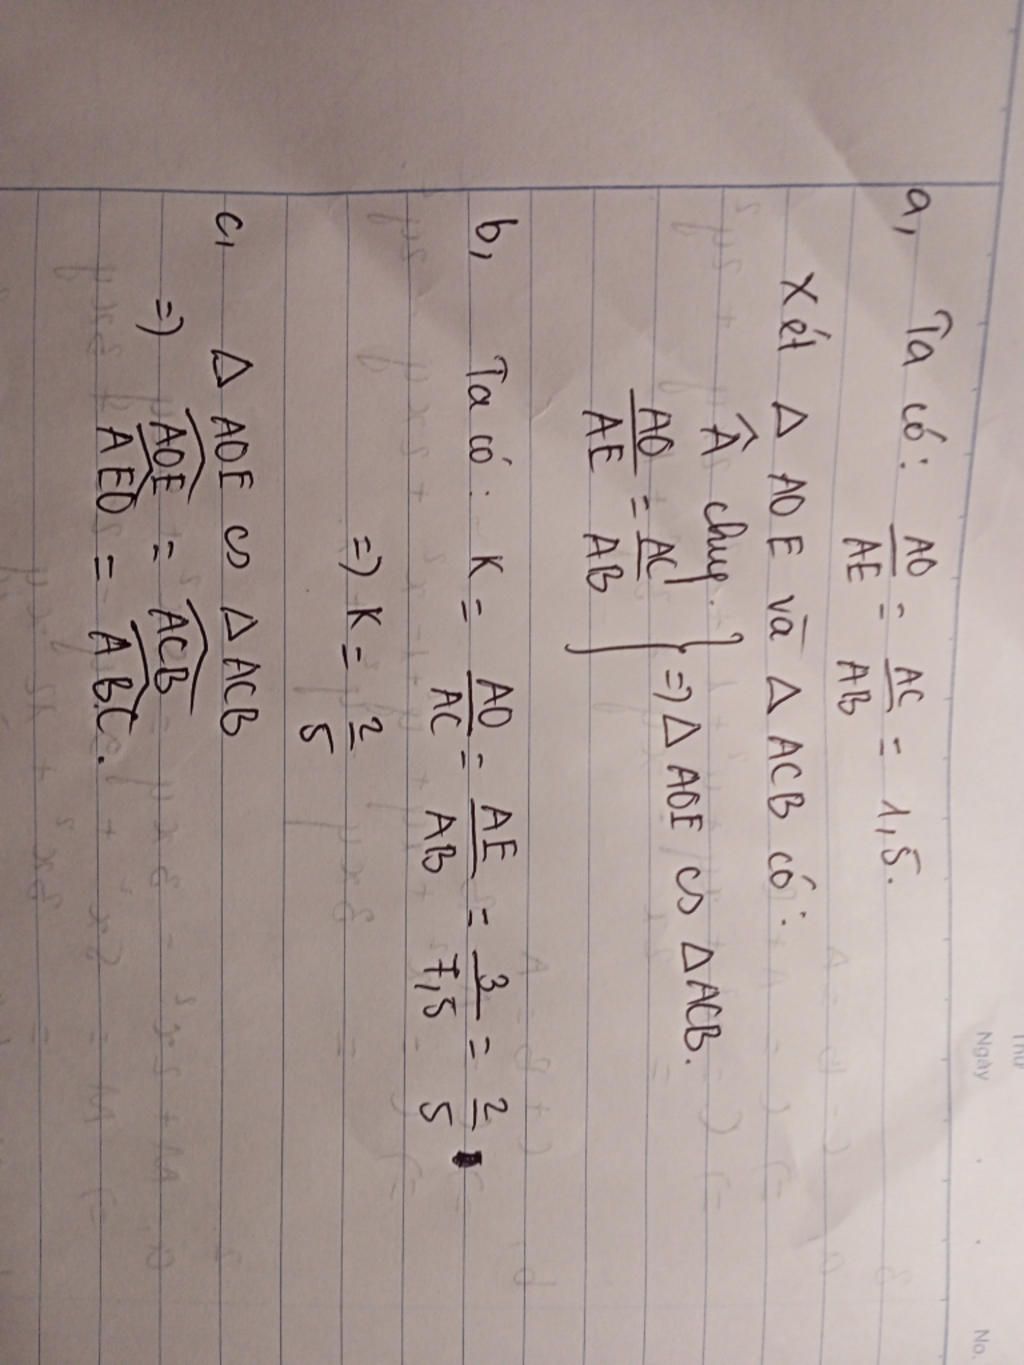 Thứ
Ngày
No.
a, Ta có: AO/AE = AC/AB = 1,5.
Xét Δ AOE và Δ ACB có:
Â chung.
AO/AE = AC/AB } => Δ AOE ∽ Δ ACB.
b, Ta có: K = AO/AC = AE/AB = 3/7,5 = 2/5
=> K = 2/5
c, Δ AOE ∽ Δ ACB
=> \widehat{AOE} = \widehat{ACB}
\widehat{AEO} = \widehat{ABC}.